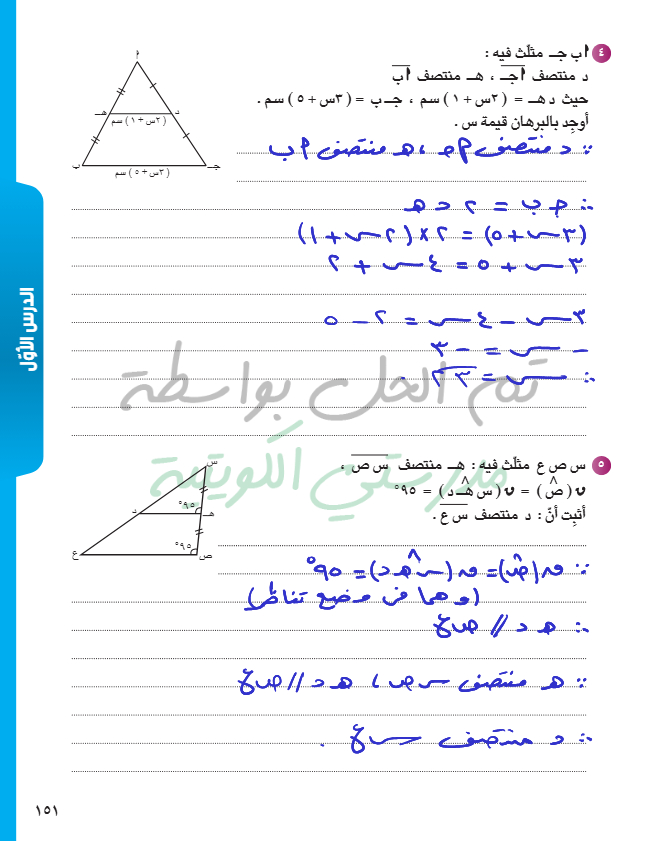 ٤ أ ب جـ مثلّث فيه :
د منتصف أجـ ، هـ منتصف أب
حيث د هـ = ( ٢س + ١ ) سم ، جـ ب = ( ٣س + ٥ ) سم .
أوجِد بالبرهان قيمة س .
أ
هـ
د
( ٢س + ١ ) سم
ب
جـ
( ٣س + ٥ ) سم
∵ د منتصف أ جـ ، هـ منتصف أ ب
∴ جـ ب = ٢ د هـ
(٣س + ٥) = ٢ × (٢س + ١)
٣س + ٥ = ٤س + ٢
٣س − ٤س = ٢ − ٥
− س = − ٣
∴ س = ٣
تم الحل بواسطة
مدرستي الكويتية
٥ س ص ع مثلّث فيه : هـ منتصف س ص ،
ق ( ص ) = ق ( س هـ د ) = ٩٥°
أثبِت أنّ : د منتصف س ع .
س
٩٥°
د
هـ
٩٥°
ع
ص
∵ ق (ص) = ق (س هـ د) = ٩٥°
(و هما في وضع تناظر)
∴ هـ د // ص ع
∵ هـ منتصف س ص ، هـ د // ص ع
∴ د منتصف س ع .
الدرس الأوّل
١٥١